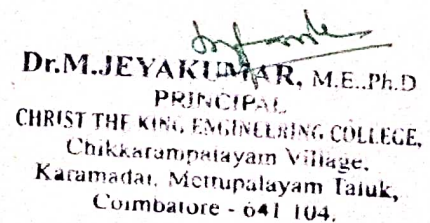 Dr.M.JEYAKUMAR, M.E.,Ph.D
PRINCIPAL
CHRIST THE KING ENGINEERING COLLEGE,
Chikkarampalayam Village,
Karamadai, Mettupalayam Taluk,
Coimbatore - 641 104.